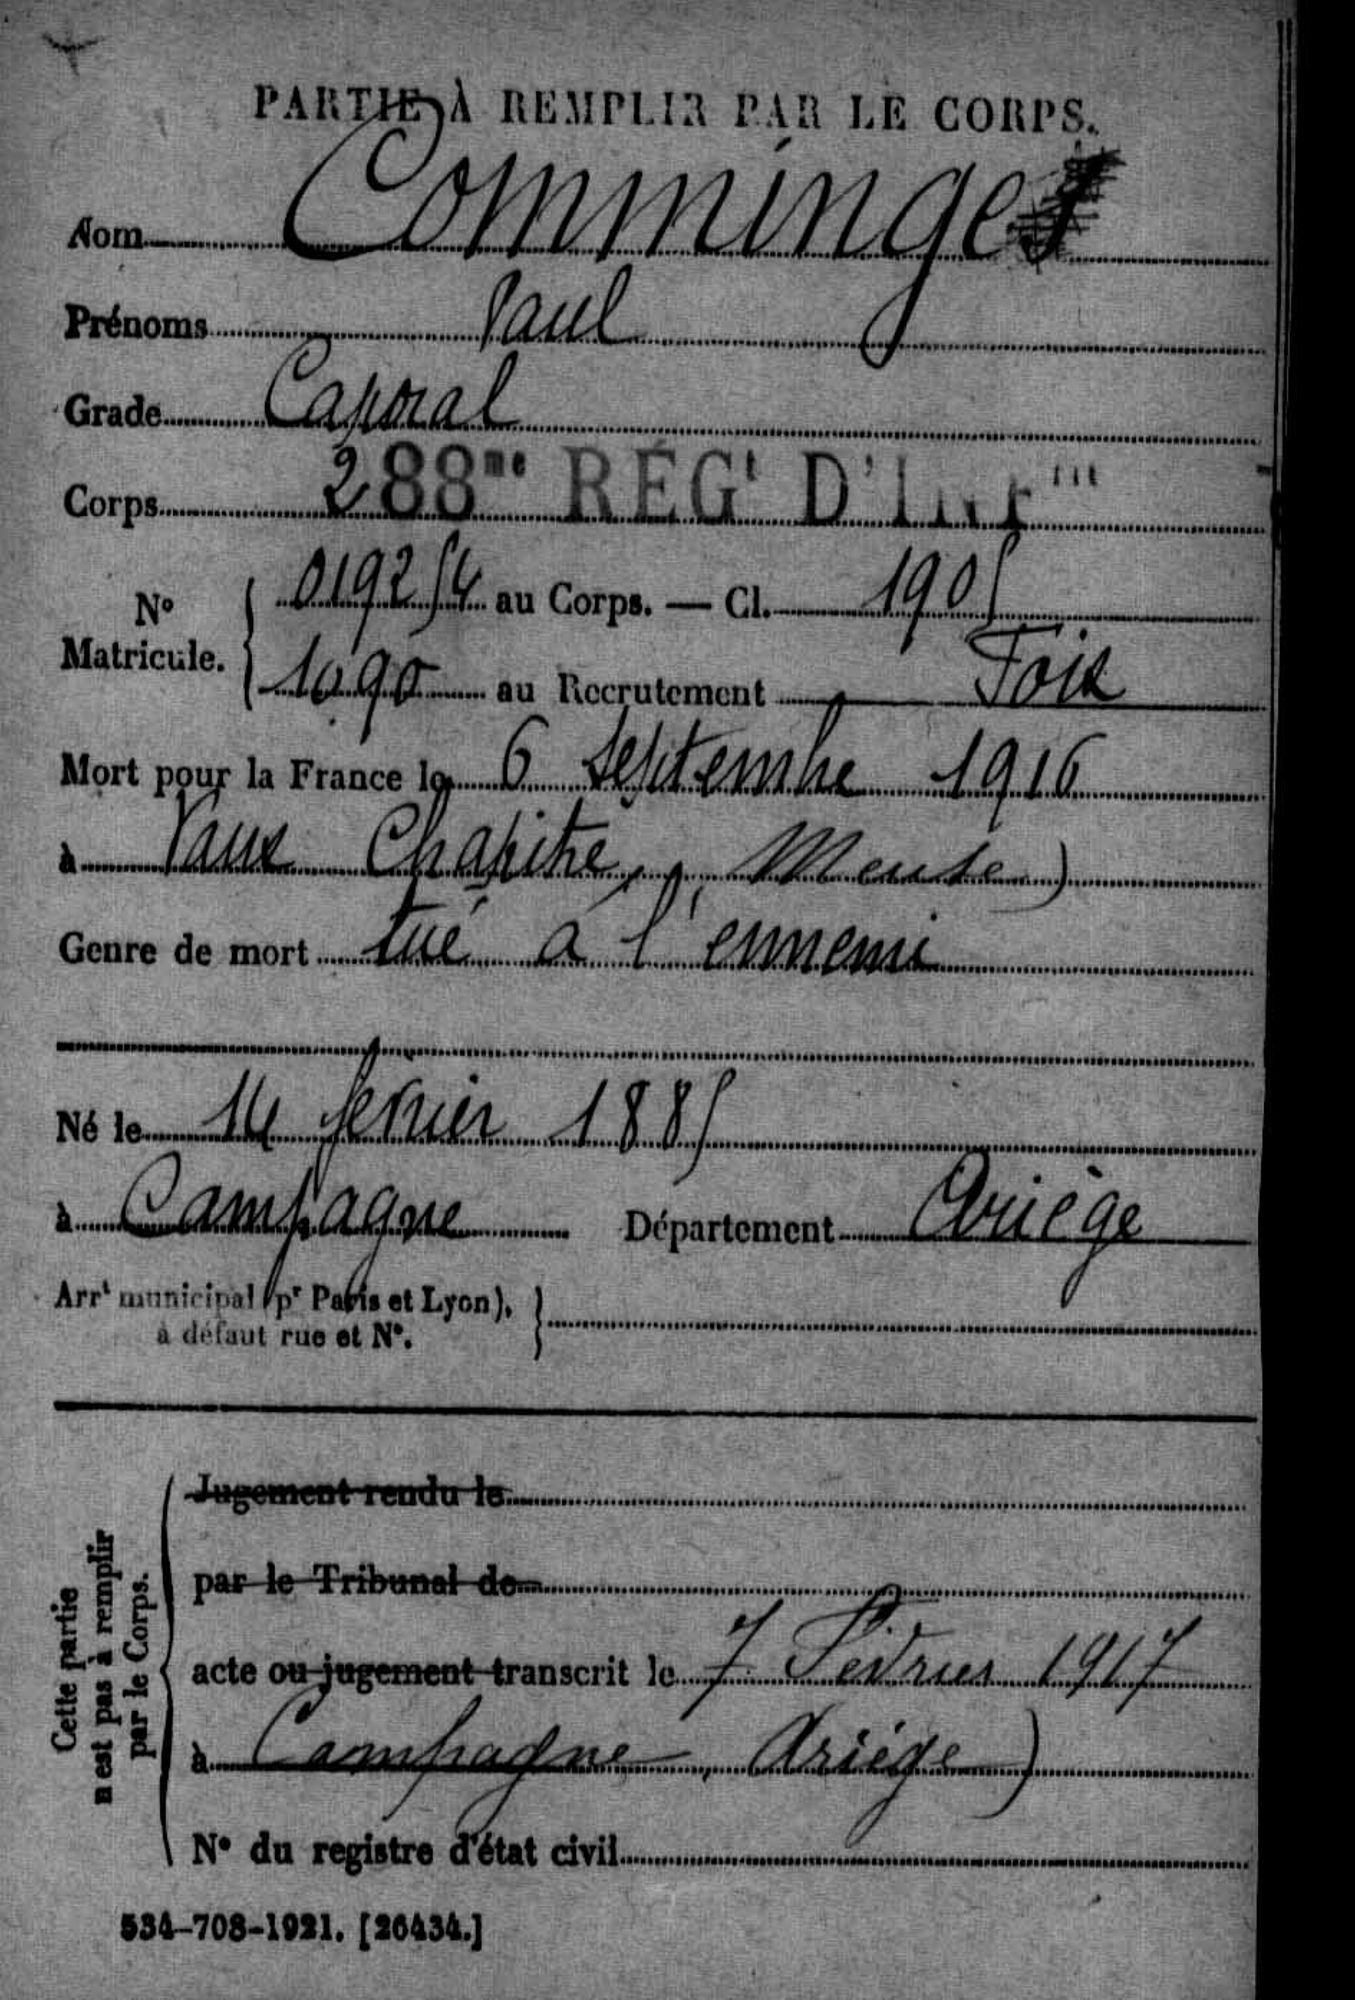 PARTIE À REMPLIR PAR LE CORPS.
Nom Comminge
Prénoms Paul
Grade Caporal
Corps 288me RÉGt D'INFrie
No Matricule. 019254 au Corps. — Cl. 1905
1090 au Recrutement Foix
Mort pour la France le 6 septembre 1916
à Vaux Chapitre, Meuse)
Genre de mort tué à l'ennemi
Né le 14 fevrier 1885
à Campagne Département Ariège
Arrt municipal (pr Paris et Lyon),
à défaut rue et No.
Cette partie
n'est pas à remplir
par le Corps.
Jugement rendu le
par le Tribunal de
acte ou jugement transcrit le 7 Février 1917
à Campagne, Ariège)
No du registre d'état civil
534-708-1921. [26434.]